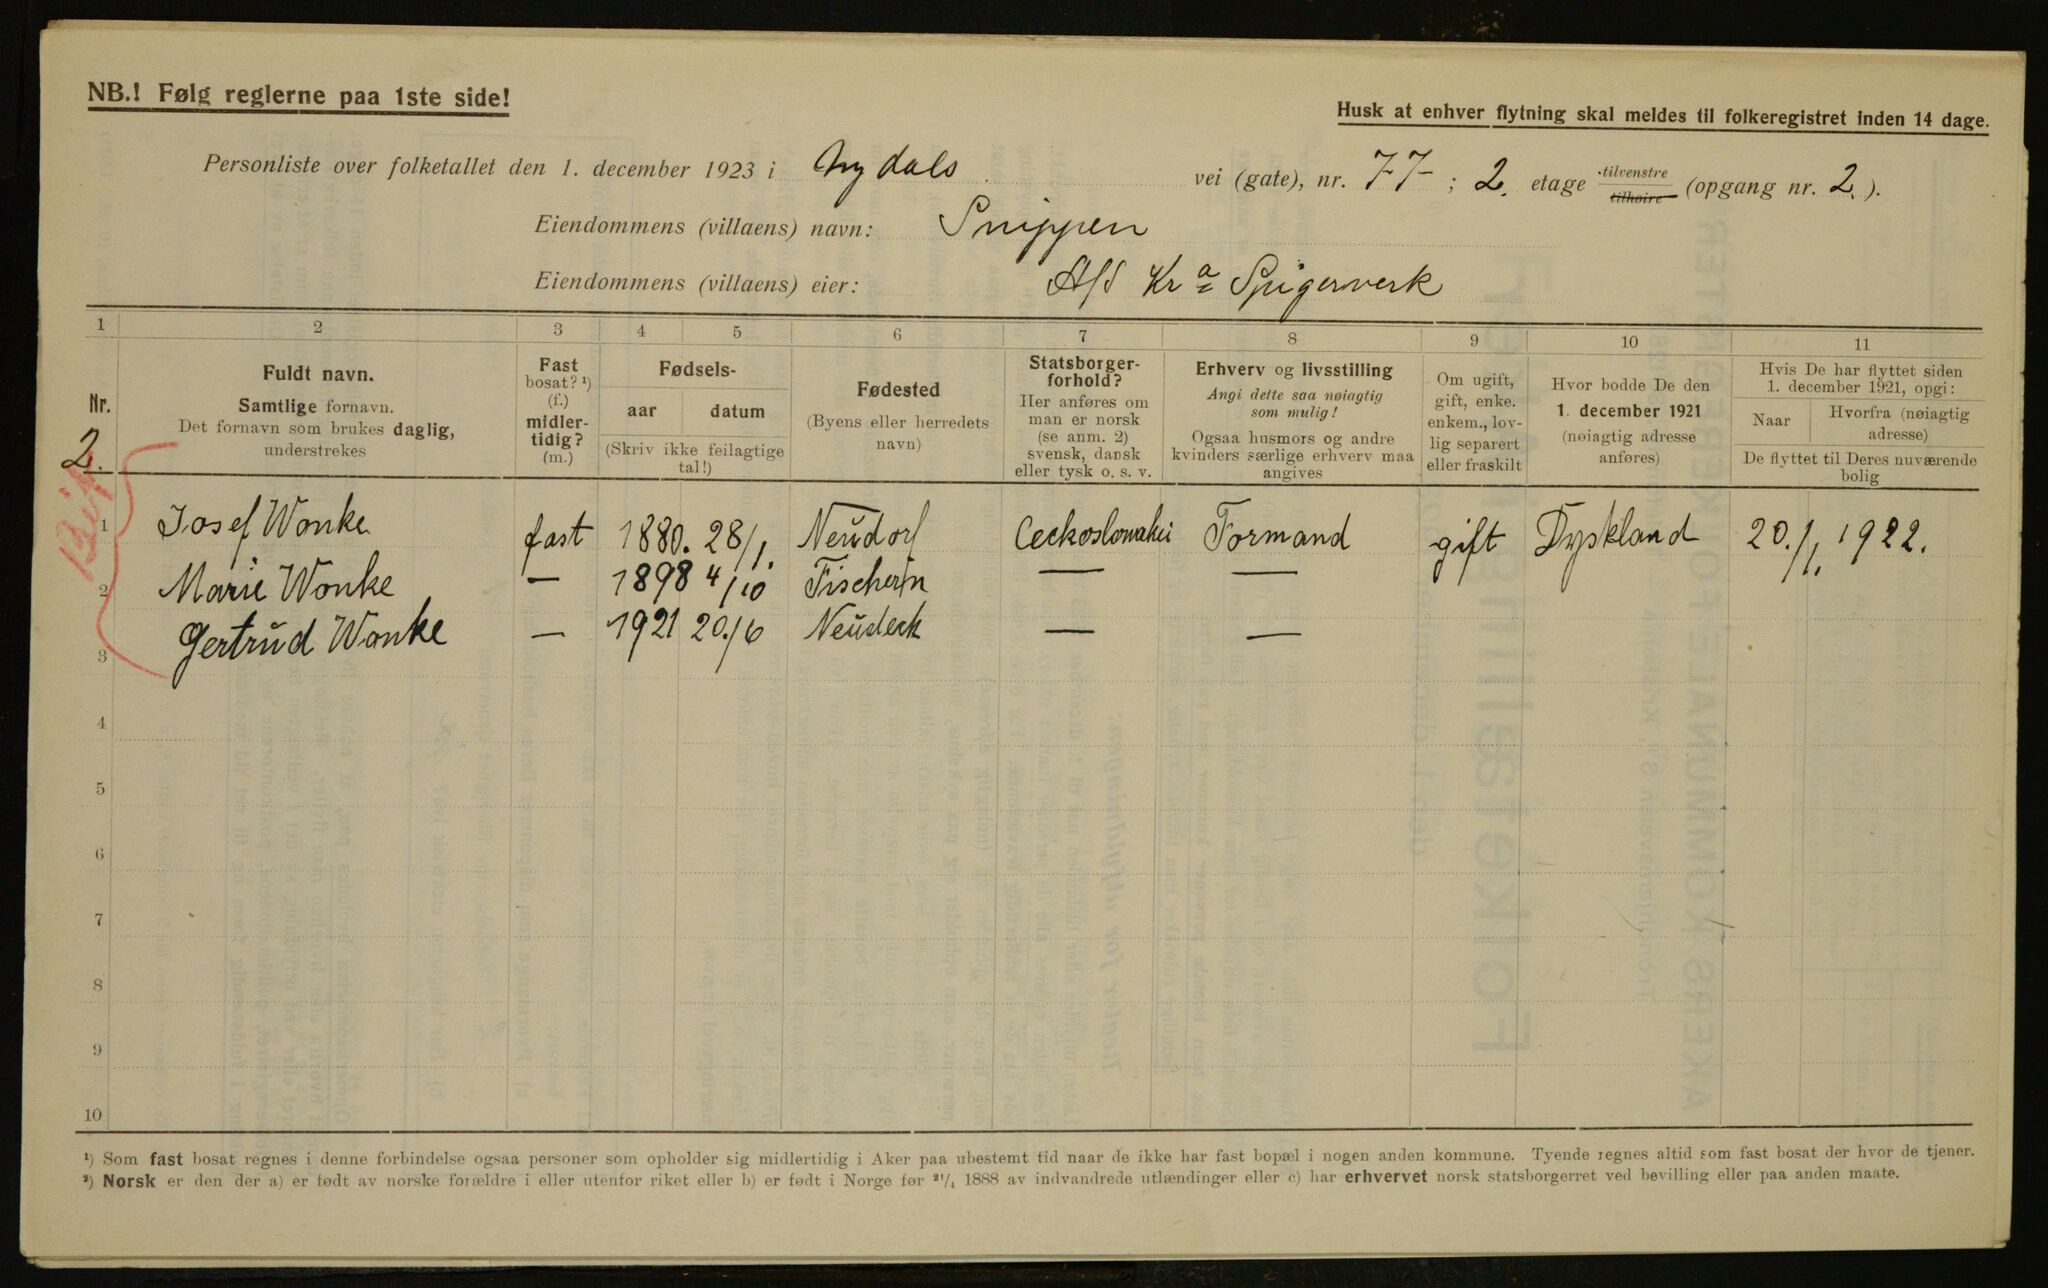 NB.! Følg reglerne paa 1ste side!
Husk at enhver flytning skal meldes til folkeregistret inden 14 dage.
Personliste over folketallet den 1. december 1923 i Nydals vei (gate), nr. 77 ; 2. etage tilvenstre tilhøire (opgang nr. 2.).
Eiendommens (villaens) navn: Snippen
Eiendommens (villaens) eier: A/S Kra Spigerverk
1 2 3 4 5 6 7 8 9 10 11
Nr.
2.
Fuldt navn.
Samtlige fornavn.
Det fornavn som brukes daglig,
understrekes
Fast
bosat? ¹)
(f.)
midler-
tidig?
(m.)
Fødsels-
aar datum
(Skriv ikke feilagtige
tal!)
Fødested
(Byens eller herredets
navn)
Statsborger-
forhold?
Her anføres om
man er norsk
(se anm. 2)
svensk, dansk
eller tysk o. s. v.
Erhverv og livsstilling
Angi dette saa nøiagtig
som mulig!
Ogsaa husmors og andre
kvinders særlige erhverv maa
angives
Om ugift,
gift, enke.
enkem., lov-
lig separert
eller fraskilt
Hvor bodde De den
1. december 1921
(nøiagtig adresse
anføres)
Hvis De har flyttet siden
1. december 1921, opgi:
Naar Hvorfra (nøiagtig
adresse)
De flyttet til Deres nuværende
bolig
1 Josef Wonke fast 1880. 28/1. Neudorf Ceckoslowakei Formand gift Dyskland 20./1. 1922.
2 Marie Wonke — 1898 4/10 Fischern — —
3 Gertrud Wonke — 1921 20./6 Neudeck — —
4
5
6
7
8
9
10
¹) Som fast bosat regnes i denne forbindelse ogsaa personer som opholder sig midlertidig i Aker paa ubestemt tid naar de ikke har fast bopæl i nogen anden kommune. Tyende regnes altid som fast bosat der hvor de tjener.
²) Norsk er den der a) er født av norske forældre i eller utenfor riket eller b) er født i Norge før ²¹/₄ 1888 av indvandrede utlændinger eller c) har erhvervet norsk statsborgerret ved bevilling eller paa anden maate.